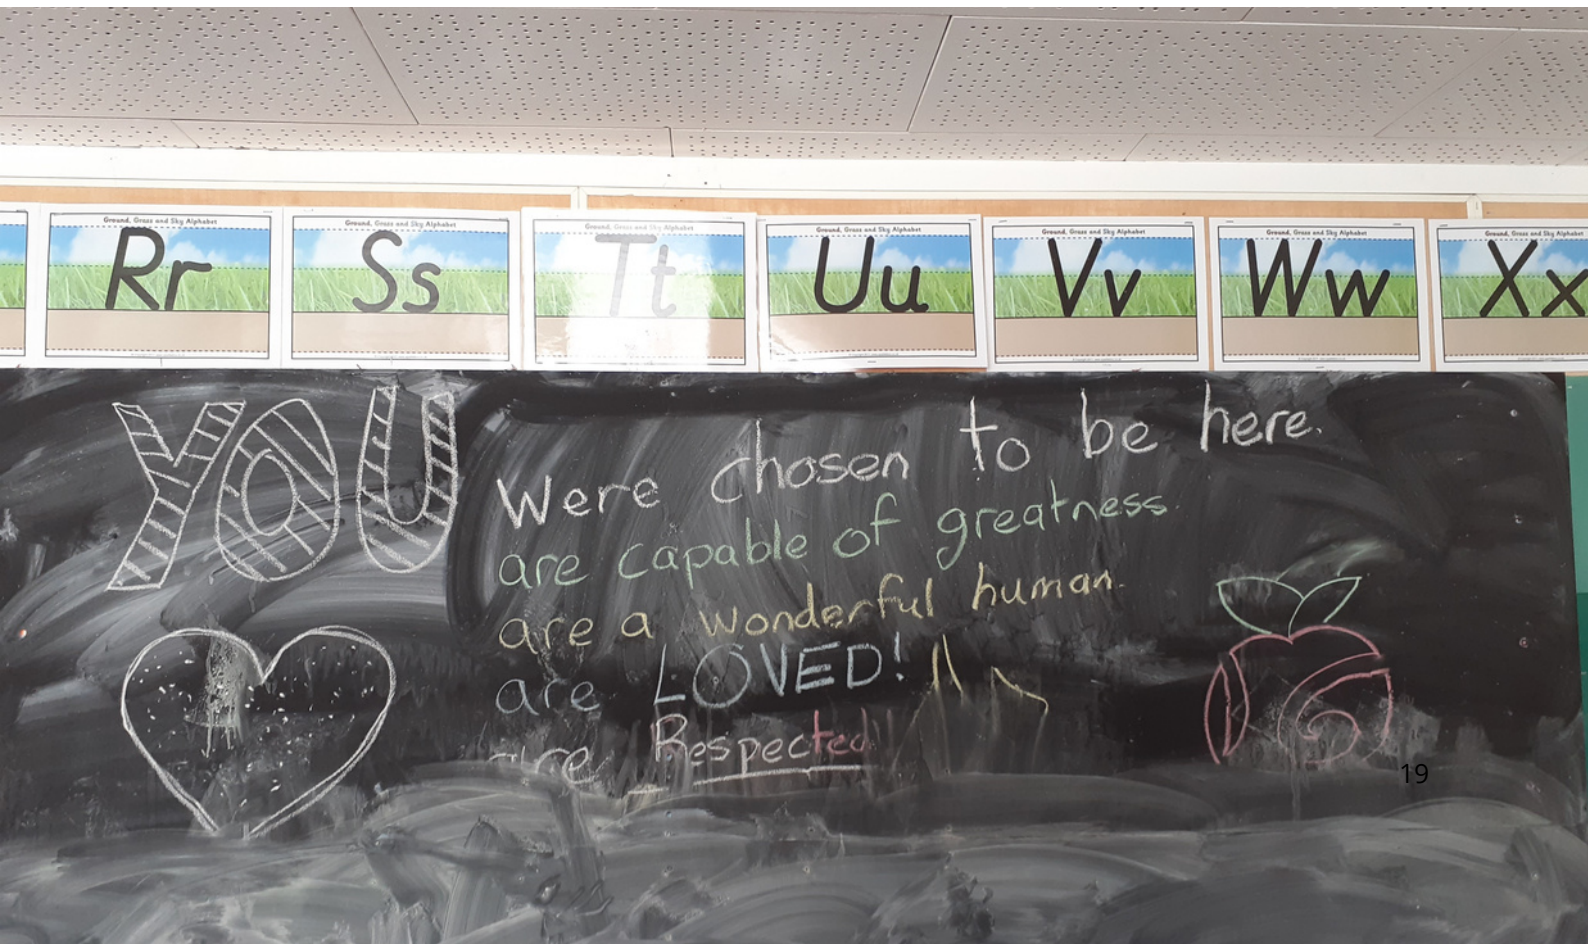 Ground, Grass and Sky Alphabet
Rr
Ground, Grass and Sky Alphabet
Ss
Ground, Grass and Sky Alphabet
Tt
Ground, Grass and Sky Alphabet
Uu
Ground, Grass and Sky Alphabet
Vv
Ground, Grass and Sky Alphabet
Ww
Ground, Grass and Sky Alphabet
Xx
YOU
Were chosen to be here.
are capable of greatness.
are a wonderful human.
are LOVED!
are Respected
19